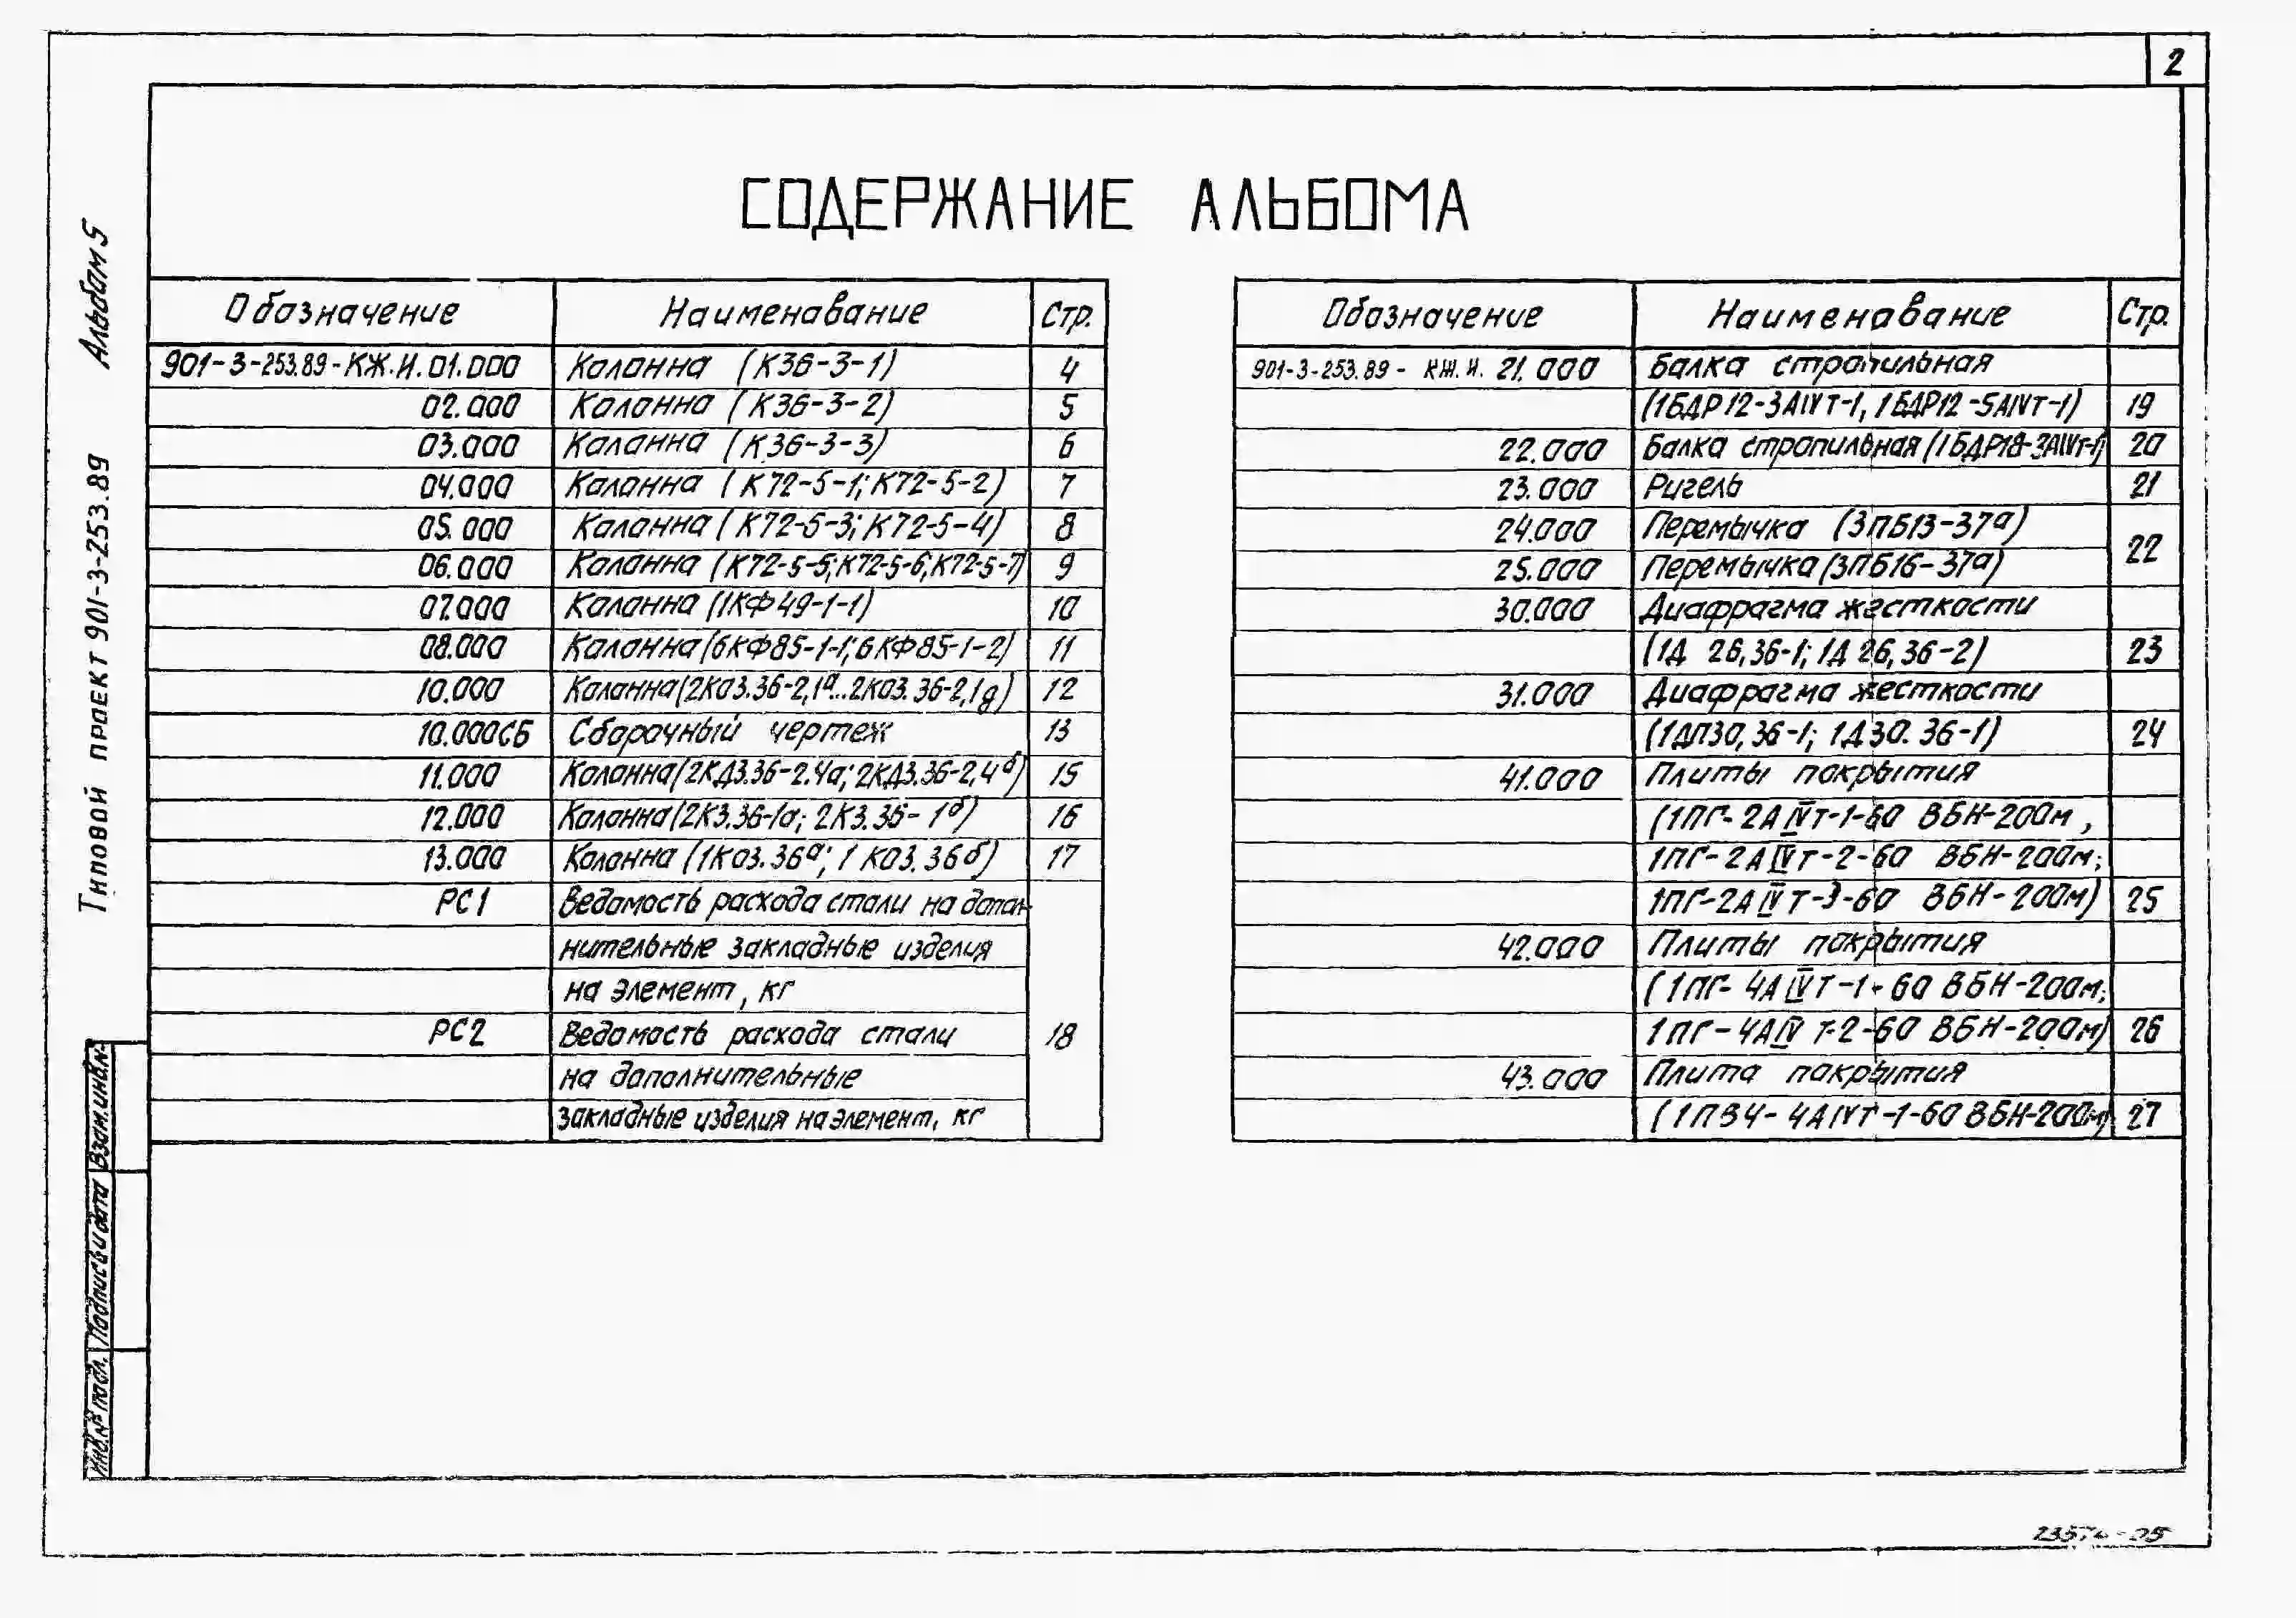 2
СОДЕРЖАНИЕ АЛЬБОМА
Альбом 5
Типовой проект 901-3-253.89
Обозначение Наименование Стр.
901-3-253.89-КЖ.И.01.000 Колонна (К36-3-1) 4
02.000 Колонна (К36-3-2) 5
03.000 Колонна (К36-3-3) 6
04.000 Колонна (К72-5-1; К72-5-2) 7
05.000 Колонна (К72-5-3; К72-5-4) 8
06.000 Колонна (К72-5-5; К72-5-6; К72-5-7) 9
07.000 Колонна (1КФ49-1-1) 10
08.000 Колонна (6КФ85-1-1; 6КФ85-1-2) 11
10.000 Колонна (2КО3.36-2,1а...2КО3.36-2,1д) 12
10.000СБ Сборочный чертеж 13
11.000 Колонна (2КД3.36-2.4а; 2КД3.36-2,4б) 15
12.000 Колонна (2К3.36-1а; 2К3.36-1б) 16
13.000 Колонна (1КО3.36а; 1КО3.36б) 17
РС1 Ведомость расхода стали на допол-
нительные закладные изделия
на элемент, кг
РС2 Ведомость расхода стали 18
на дополнительные
закладные изделия на элемент, кг
Обозначение Наименование Стр.
901-3-253.89-КЖ.И.21.000 Балка стропильная
(1БДР12-3АIVТ-1, 1БДР12-5АIVТ-1) 19
22.000 Балка стропильная (1БДР18-3АIVт-1) 20
23.000 Ригель 21
24.000 Перемычка (3ПБ13-37а)
22
25.000 Перемычка (3ПБ16-37а)
30.000 Диафрагма жесткости
(1Д 26,36-1; 1Д 26,36-2) 23
31.000 Диафрагма жесткости
(1ДП30,36-1; 1Д30.36-1) 24
41.000 Плиты покрытия
(1ПГ-2АIVт-1-60 ВБН-200м,
1ПГ-2АIVт-2-60 ВБН-200м;
1ПГ-2АIVТ-3-60 ВБН-200м) 25
42.000 Плиты покрытия
(1ПГ-4АIVТ-1-60 ВБН-200м;
1ПГ-4АIV Т-2-60 ВБН-200м) 26
43.000 Плита покрытия
(1ПВ4-4АIVТ-1-60 ВБН-200м) 27
Взам.инв.№
Подпись и дата
Инв.№ подл.